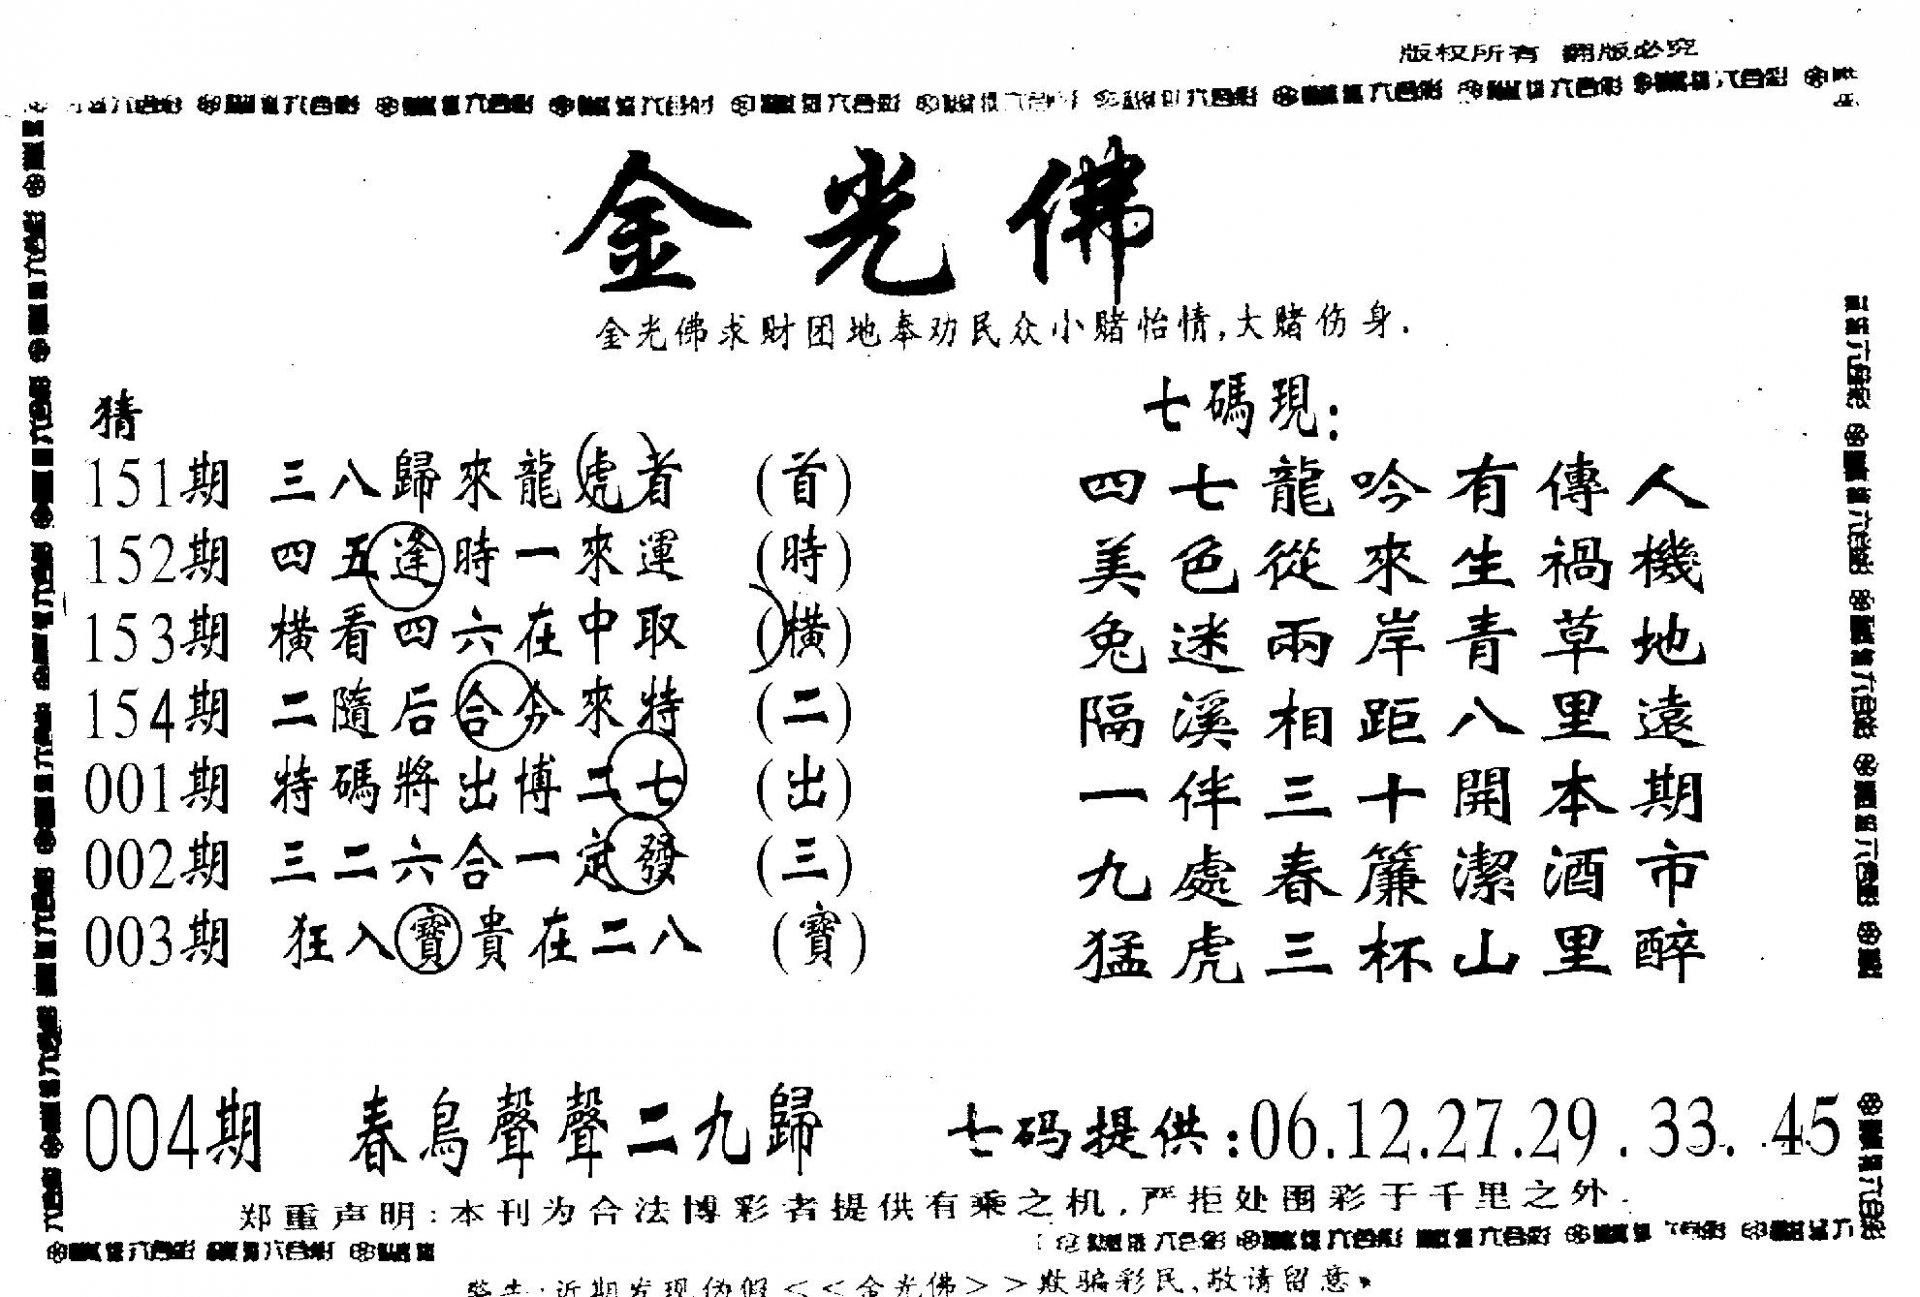 版权所有 翻版必究
金光佛
金光佛求财团地奉劝民众小赌怡情,大赌伤身.
猜
151期 三八歸來龍虎者 (首)
152期 四五逢時一來運 (時)
153期 橫看四六在中取 (橫)
154期 二隨后合夯來特 (二)
001期 特碼將出博二七 (出)
002期 三二六合一定發 (三)
003期 狂入寶貴在二八 (寶)
七碼現:
四七龍吟有傳人
美色從來生禍機
兔迷兩岸青草地
隔溪相距八里遠
一伴三十開本期
九處春簾潔酒市
猛虎三杯山里醉
004期 春鳥聲聲二九歸 七码提供:06.12.27.29.33.45
郑重声明:本刊为合法博彩者提供有乘之机,严拒处围彩于千里之外.
警告:近期发现伪假<<金光佛>>欺骗彩民,敬请留意.